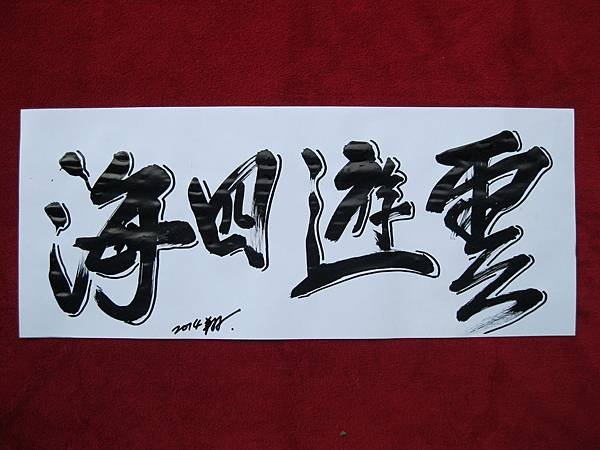 雲遊四海
2014